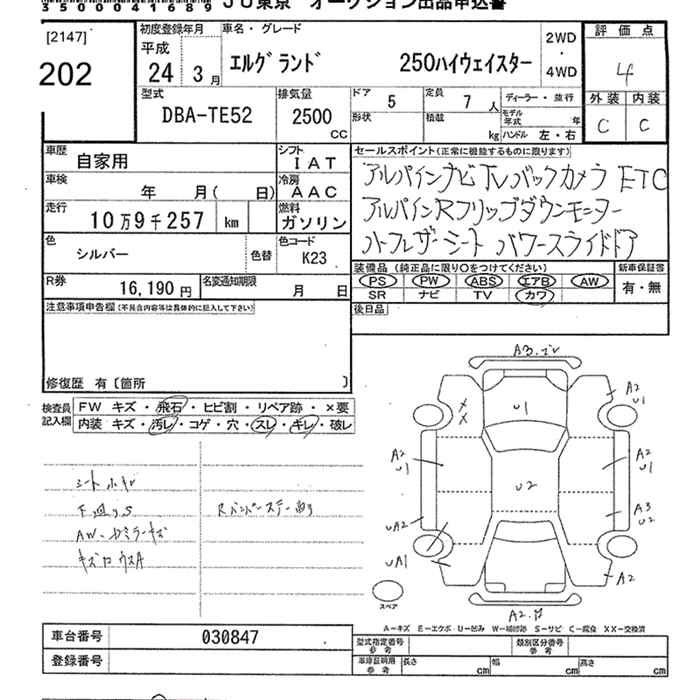 350004168 9 JU東京 オークション出品申込書
[2147]
202
初度登録年月
平成
24年 3月
車名・グレード
エルグランド 250ハイウェイスター
2WD
・
4WD
評価点
4
外装 内装
C C
型式
DBA-TE52
排気量
2500
CC
ドア 5
定員 7人
形状
積載 kg
ディーラー・並行
モデル年式 年
ハンドル 左・右
車歴 自家用
シフト IAT
車検 年 月( 日)
冷房 AAC
走行 10万9千257 km
燃料 ガソリン
色 シルバー 色替
色コード K23
R券 16,190円
名変通知期限 月 日
セールスポイント(正常に機能するものに限ります)
アルパインナビ TV バックカメラ ETC
アルパインRフリップダウンモニター
ハーフレザーシート パワースライドドア
装備品(純正品に限り○をつけてください) 新車保証書
PS PW ABS エアB AW
SR ナビ TV カワ
有・無
後日品
注意事項申告欄(不具合内容等は具体的に記入して下さい)
修復歴 有〔箇所 〕
検査員記入欄
FW キズ・飛石・ヒビ割・リペア跡・×要
内装 キズ・汚レ・コゲ・穴・スレ・キレ・破レ
AW
A3
U1
A2
U1
A2
U1
A2
U1
U2
A3
U2
UA2
UA1
A2
A2
スペア
A-キズ E-エクボ U-凹み W-補修跡 S-サビ C-腐食 XX-交換済
車台番号 030847
登録番号
型式指定番号 参考
類別区分番号 参考
車庫証明用 参考
長さ cm
幅 cm
高さ cm